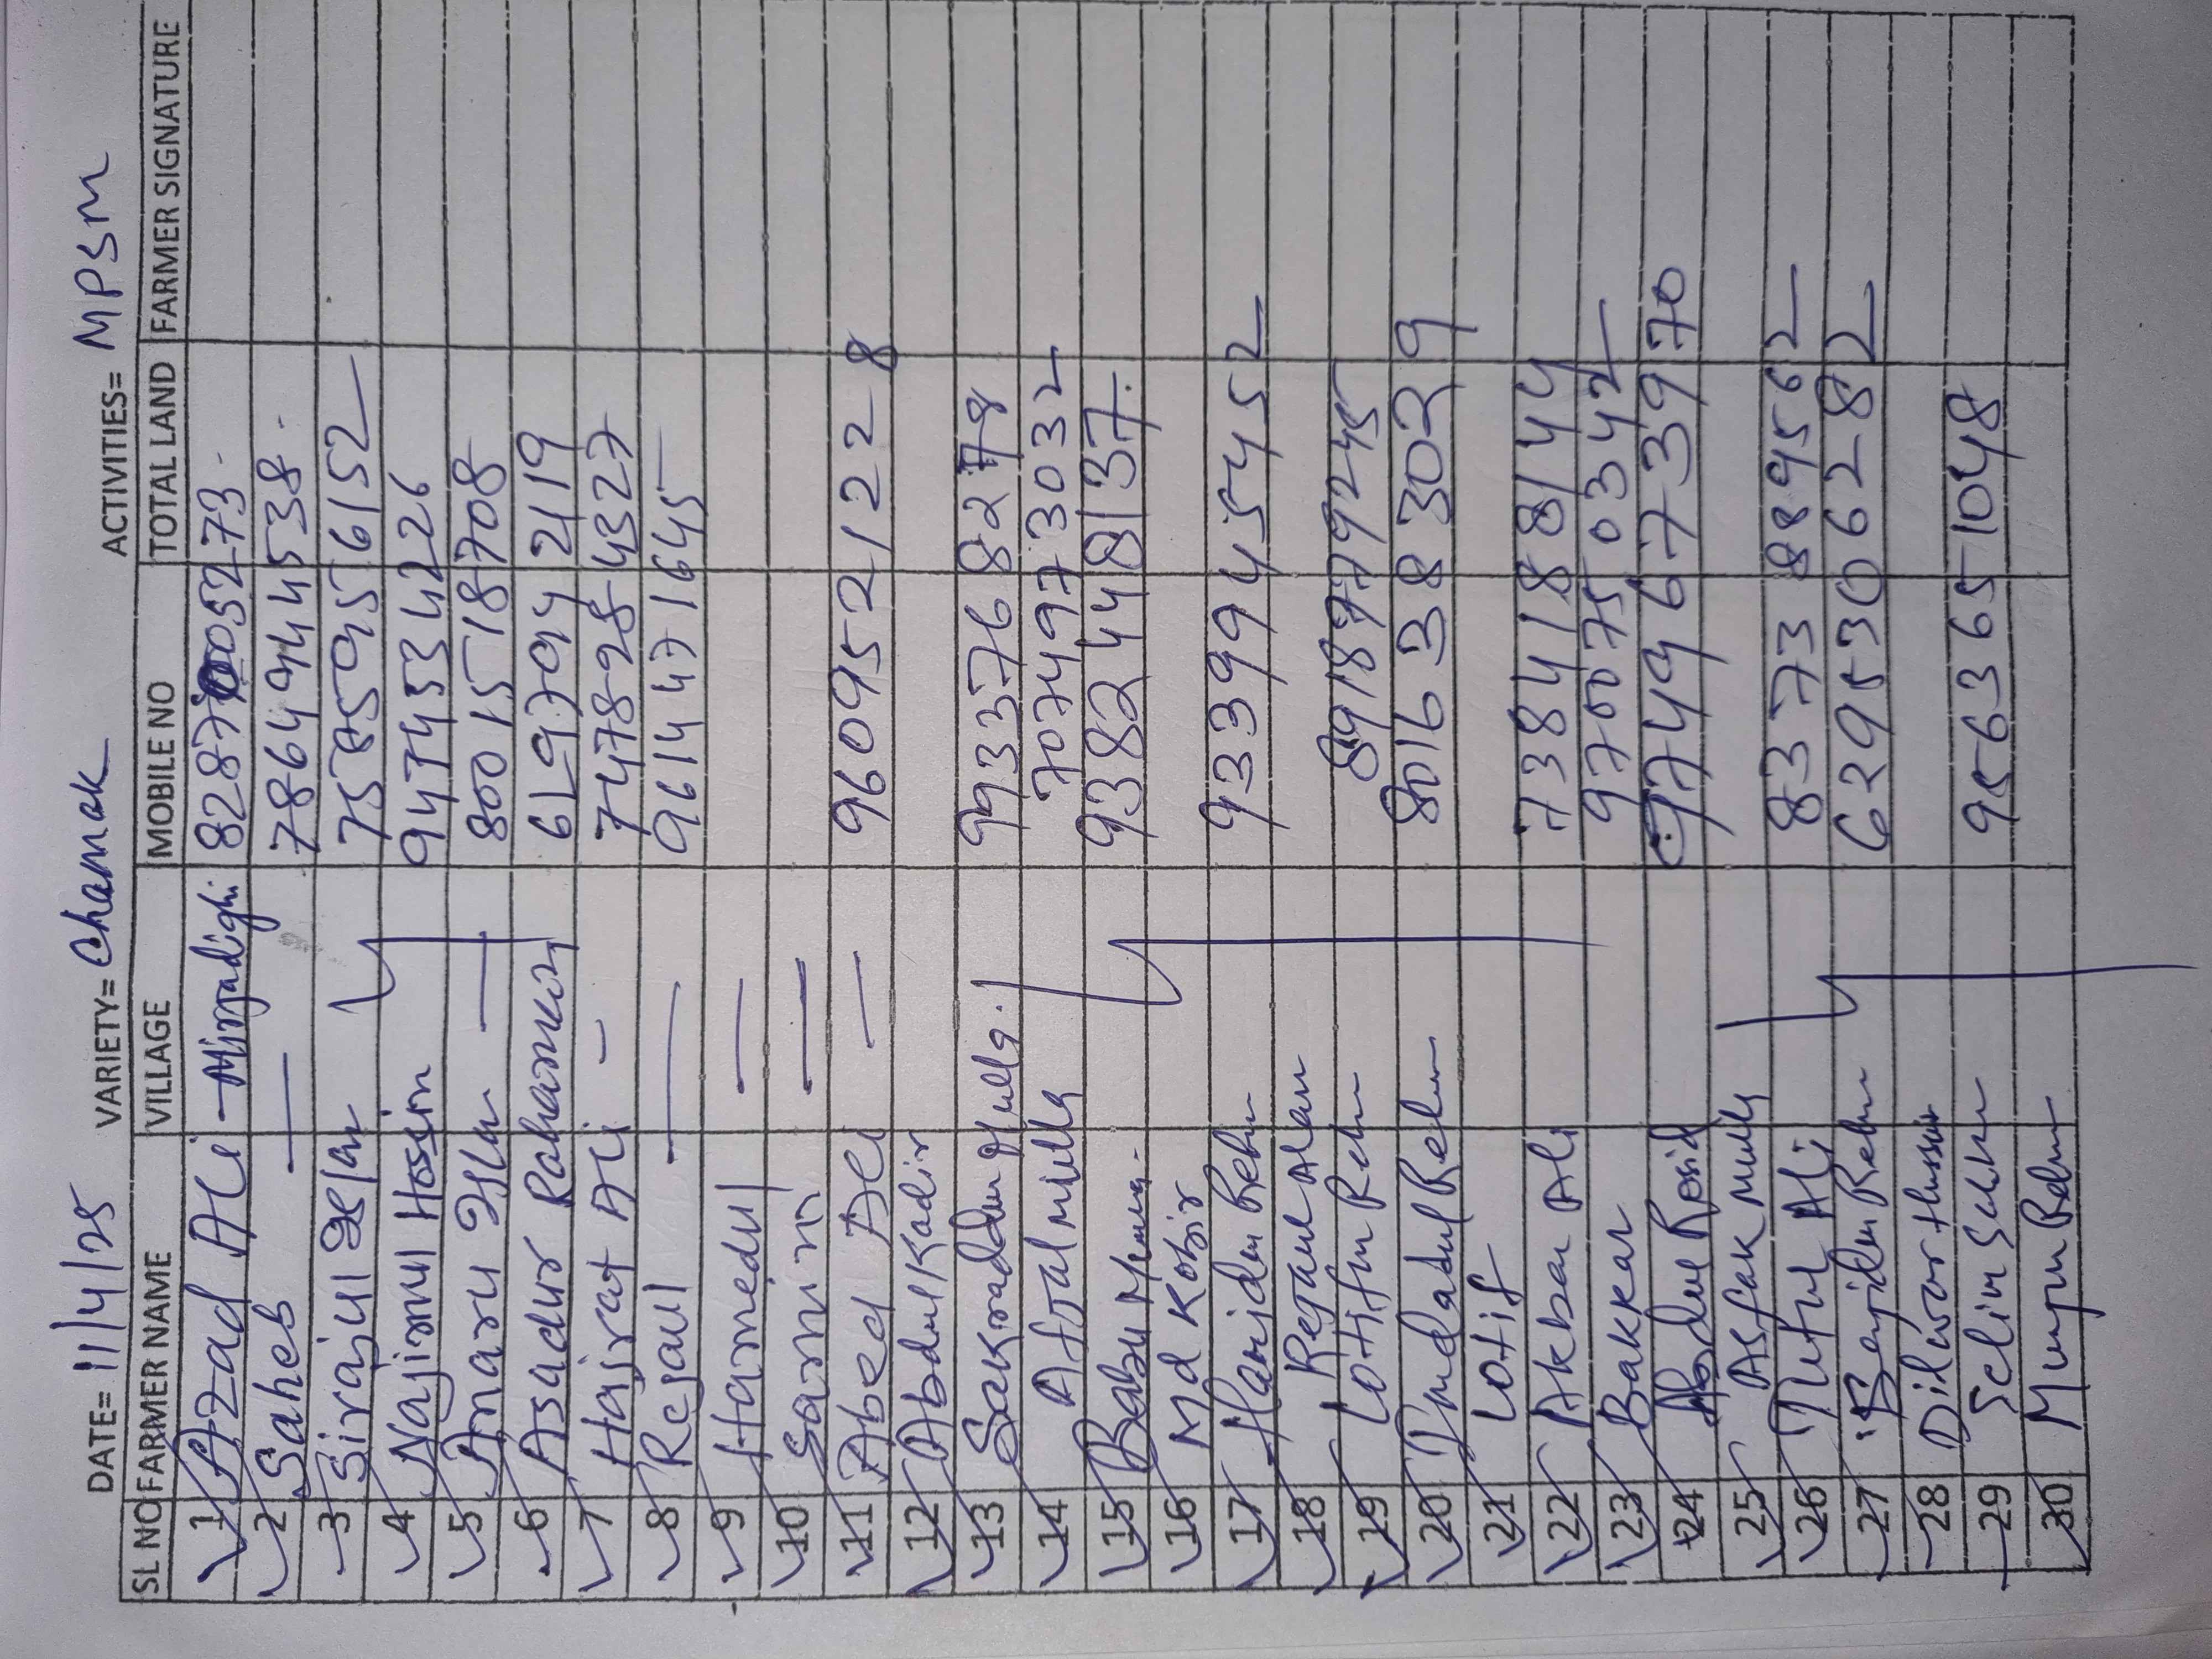 DATE= 11/4/25 VARIETY= Chamak ACTIVITIES= MPSM
SL NO FARMER NAME VILLAGE MOBILE NO TOTAL LAND FARMER SIGNATURE
1 Azad Ali - Mirzadighi 8287 0052 73
2 Saheb 7864944538
3 Sirajul 7585956152
4 Najimul Hosin 9474534226
5 Anaru 8001518708
6 Asadur Rahaman 6297942119
7 Hajrat Ali 7478284327
8 Rejaul 9614471645
9 Hamedul
10 Samim
11 Abed Ali 9609521228
12 Abdul Kadir
13 Mulla. 9933768278
14 Aftal mulla 7074973032
15 Babu 9382448137
16 Md Kobir
17 9339945452
18 Rejaul Alam
19 Lotifur 8918779245
20 Imdadul 8016383029
21 Lotif
22 Akbar Ali 7384188144
23 Bakkar 9700750342
24 Abdul Rosid 9749673970
25 Asfak Mulla
26 Tutul Ali 8373889562
27 6295306282
28 Dilwar Hussain
29 Selim 9563651048
30